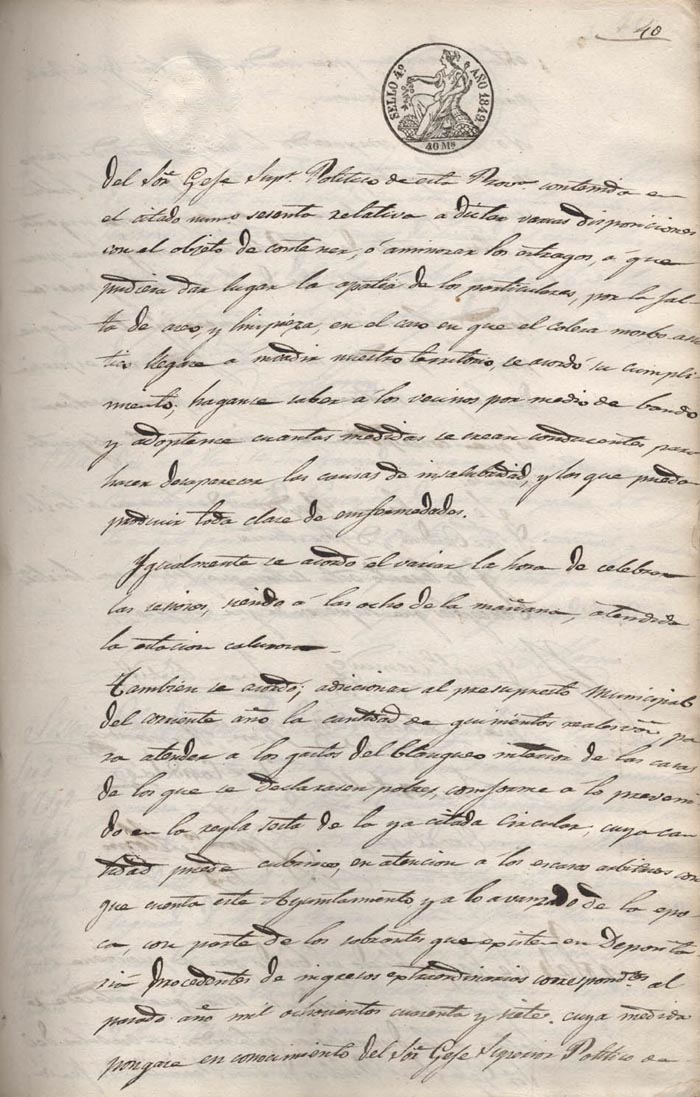 40
SELLO 4º AÑO 1849.
40 Ms
del Sôr Gefe Supr. Politico de esta Provª contenida en
el citado num.º sesenta relativa a dictar varias disposiciones
con el objeto de contener, ó aminorar los estragos, a que
pudiera dar lugar la apatia de los particulares, por la fal-
ta de aseo, y limpieza, en el caso en que el colera morbo asia
tico llegase a invadir nuestro territorio, se acordó su cumpli-
miento; hagance saber a los vecinos por medio de bando
y adoptence cuantas medidas se crean conducentes para
hacer desaparecer las causas de insalubridad, y los que puedan
producir toda clace de emfermedades.
Igualmente se acordó el variar la hora de celebrar
las sesiones, siendo á las ocho de la mañana, atendida
la estacion calurosa
Tambien se acordó; adicionar al presupuesto Municipal
del corriente año la cantidad de quinientos reales von pa
ra atender a los gastos del blanqueo interior de las casas
de los que se declarasen pobres, comforme a lo preveni
do en la regla sesta de la ya citada Circular, cuya can
tidad puede cubrirse, en atencion a los escasos arbitrios con
que cuenta este Ayuntamiento y a lo avanzado de la epo
ca, con parte de los sobrantes que existen en Deposita
ria procedentes de ingresos extraordinarios correspondtes al
pasado año mil ochocientos cuarenta y siete. cuya medida
pongase en conocimiento del Sôr Gefe Superior Politico de